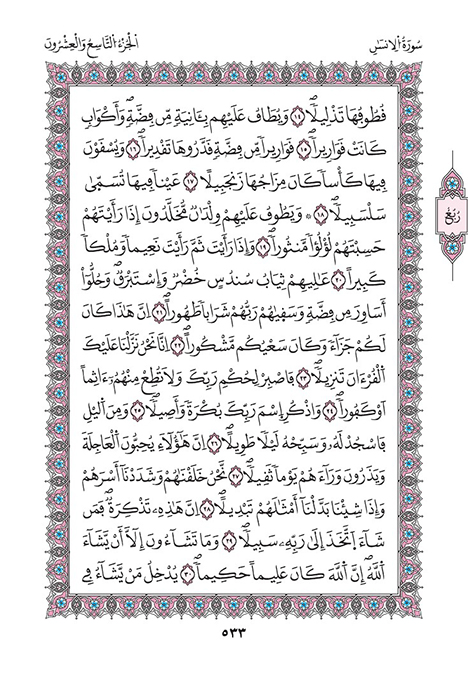 سُورَةُ اُلِانسَٰنِ
اَلْجُزْءُ اُلتَّاسِعُ وَالْعِشْرُونَ
قُطُوفُهَا تَذْلِيلًا ١٤ وَيُطَافُ عَلَيْهِم بِـَٔانِيَةٖ مِّن فِضَّةٖ وَأَكْوَابٖ
كَانَتْ قَوَارِيراٗ ١٥ قَوَارِيراٗ مِّن فِضَّةٖ قَدَّرُوهَا تَقْدِيراٗ ١٦ وَيُسْقَوْنَ
فِيهَا كَأْساٗ كَانَ مِزَاجُهَا زَنجَبِيلًا ١٧ عَيْناٗ فِيهَا تُسَمَّيٰ
سَلْسَبِيلًا ١٨ ۞ وَيَطُوفُ عَلَيْهِمْ وِلْدَٰنٞ مُّخَلَّدُونَ إِذَا رَأَيْتَهُمْ
حَسِبْتَهُمْ لُؤْلُؤاٗ مَّنثُوراٗ ١٩ وَإِذَا رَأَيْتَ ثَمَّ رَأَيْتَ نَعِيماٗ وَمُلْكاٗ
كَبِيراٗ ٢٠ عَٰلِيهِمْ ثِيَابُ سُندُسٍ خُضْرٞ وَإِسْتَبْرَقٞ وَحُلُّوٓاْ
أَسَاوِرَ مِن فِضَّةٖ وَسَقَيٰهُمْ رَبُّهُمْ شَرَاباٗ طَهُوراٗ ٢١ اِنَّ هَٰذَا كَانَ
لَكُمْ جَزَآءٗ وَكَانَ سَعْيُكُم مَّشْكُوراٗ ٢٢ اِنَّا نَحْنُ نَزَّلْنَا عَلَيْكَ
اَلْقُرْءَانَ تَنزِيلًا ٢٣ فَاصْبِرْ لِحُكْمِ رَبِّكَ وَلَا تُطِعْ مِنْهُمُۥٓ ءَاثِماً
اَوْ كَفُوراٗ ٢٤ وَاذْكُرِ اِسْمَ رَبِّكَ بُكْرَةٗ وَأَصِيلًا ٢٥ وَمِنَ اَليْلِ
فَاسْجُدْ لَهُۥ وَسَبِّحْهُ لَيْلًا طَوِيلًا ٢٦ اِنَّ هَٰٓؤُلَآءِ يُحِبُّونَ اَلْعَاجِلَةَ
وَيَذَرُونَ وَرَآءَهُمْ يَوْماٗ ثَقِيلًا ٢٧ نَّحْنُ خَلَقْنَٰهُمْ وَشَدَدْنَآ أَسْرَهُمْ
وَإِذَا شِئْنَا بَدَّلْنَآ أَمْثَٰلَهُمْ تَبْدِيلًا ٢٨ اِنَّ هَٰذِهِۦ تَذْكِرَةٞ فَمَن
شَآءَ اَتَّخَذَ إِلَىٰ رَبِّهِۦ سَبِيلًا ٢٩ وَمَا تَشَآءُونَ إِلَّآ أَنْ يَّشَآءَ
اَللَّهُۖ إِنَّ اَللَّهَ كَانَ عَلِيماً حَكِيماٗ ٣٠ يُدْخِلُ مَنْ يَّشَآءُ فِي
رُبُعْ
٥٣٣